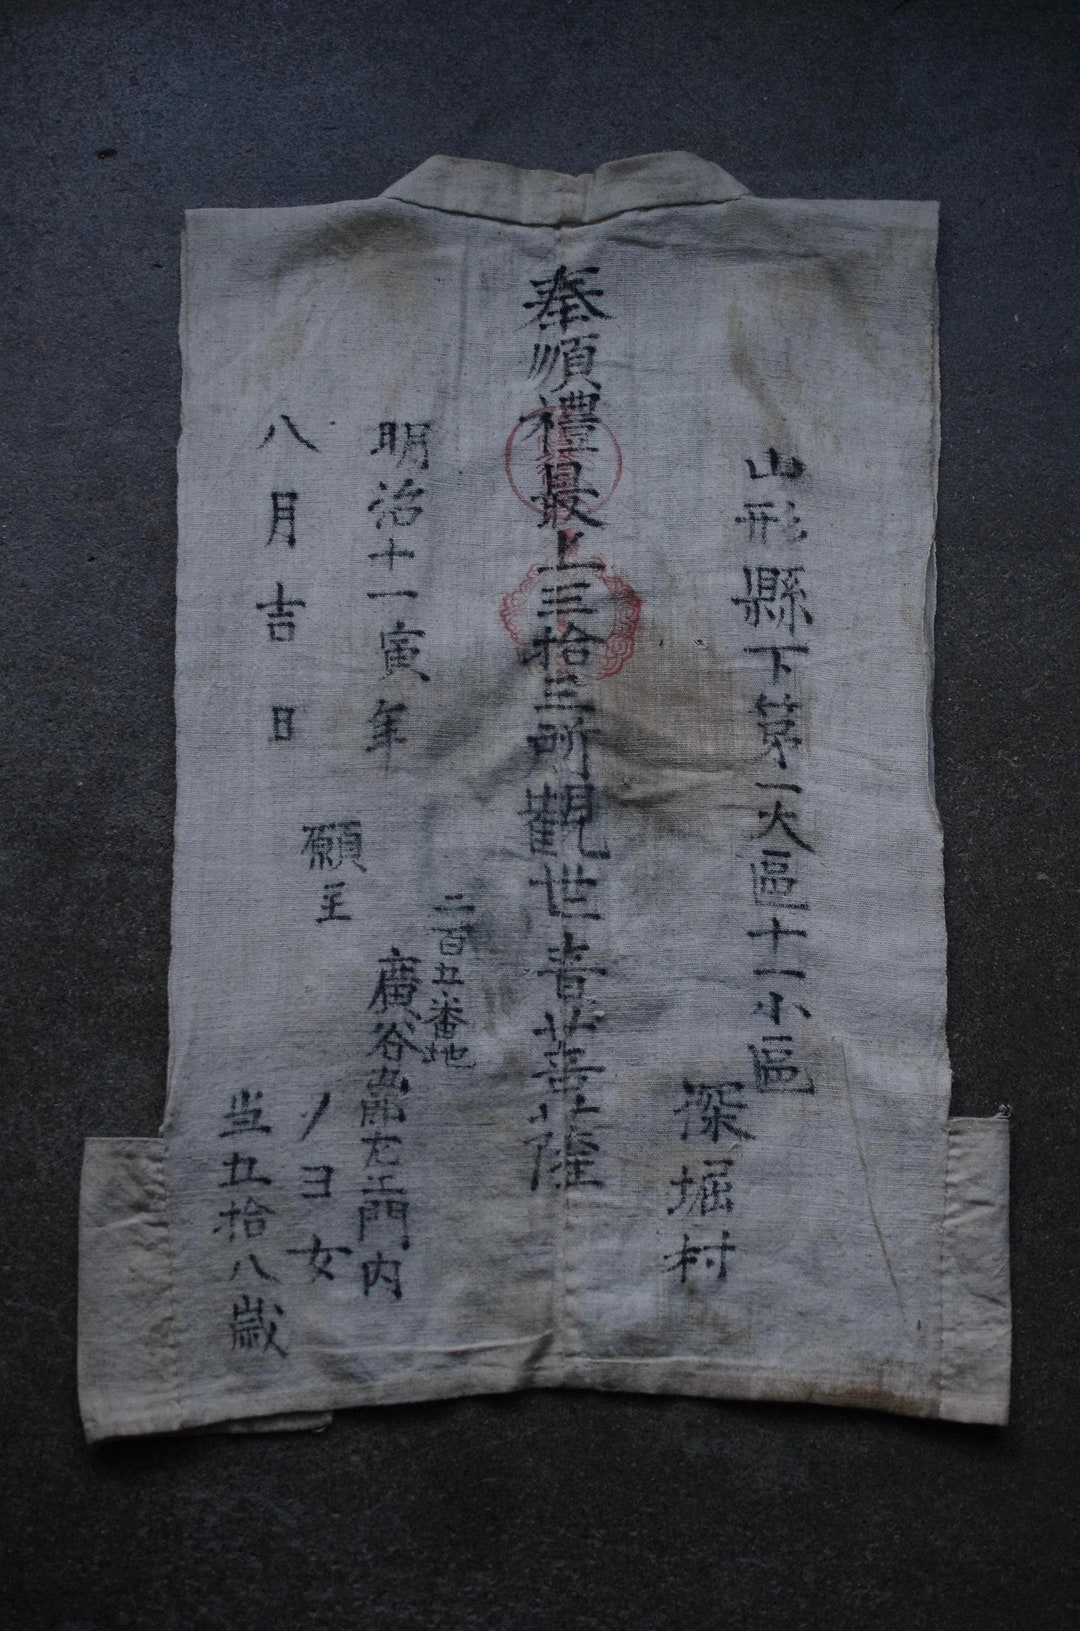 奉順禮最上三拾三所觀世音菩薩
山形縣下第一大區十一小區
深堀村
明治十一寅年
八月吉日
願主
二百五番地
廣谷五郎右エ門内
ノヨ女
当五拾八歳